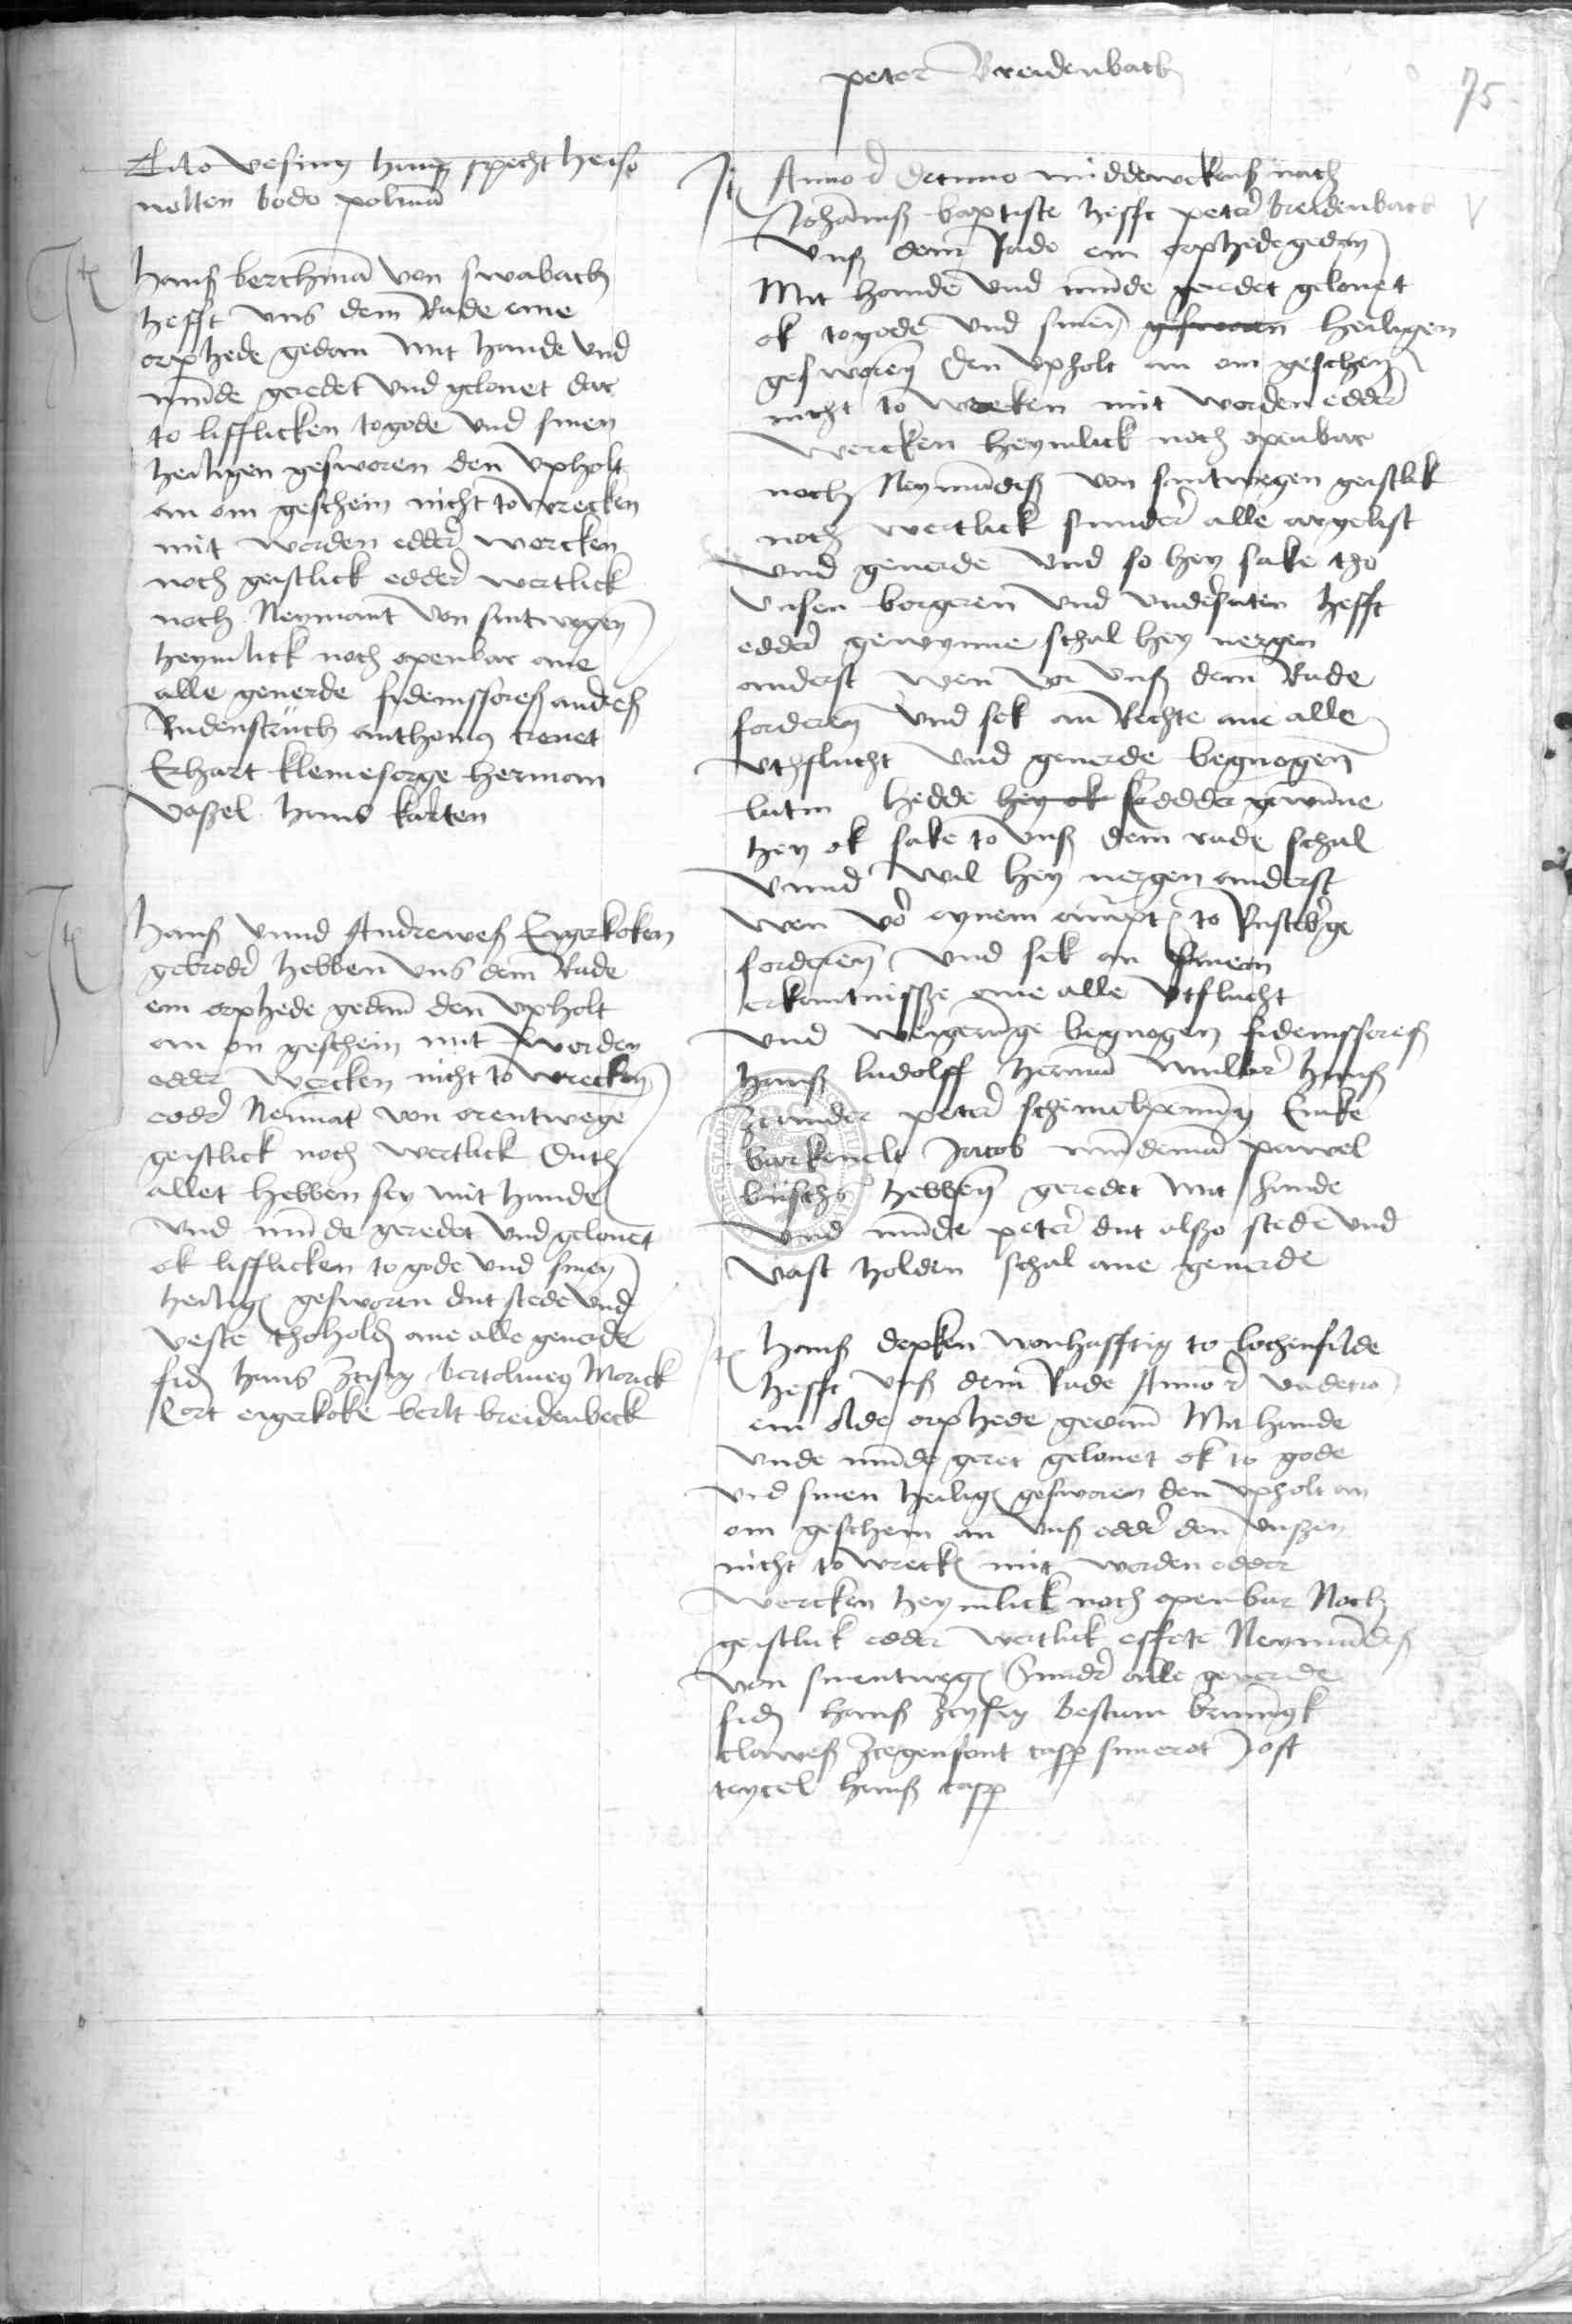 peter Breidenbach
75
Tilo vesing hans specht heise
nolten bodo polmā
Itē
hans berchmā von swabach
hefft vns dem Rade eine
orphede gedan mit hande vnd
mūde geredet vnd gelouet dar
to lifflicken to gode vnd sinen
heiligen gesworen den vpholt
an om geschein nicht to wrecken
mit worden edder wercken
noch geistlick edder wertlick
noch Neymant von sintwegen
heymlick noch openbar ane
alle geuerde fideiussores andres
Rudenstruch anthonius treuet
Erhart klemesorge herman
voszel hans karten
Itē
hans vnnd Andrewes Eygerkoken
gebroder hebben vns dem Rade
ein orphede gedan den vpholt
an on geschein mit worden
edder wercken nicht to wrecken
edder Neimāt von orentwege
geistlick noch wertlick Duth
allet hebben sey mit hande
vnd mūde geredet vnd gelouet
ok lifflicken to gode vnd sinen
heilig gesworen dut stede vnd
veste tho hold ane alle geuerde
fid hans zcising bertolmeus Morick
Cort eigerkoke berlt breidenbeck
Itē Anno decimo middewekens nach
Johānis baptiste hefft peter breidenbach
vns dem Rade ein orphede gedan
Mit hande vnd mūde geredet gelouet
ok to gode vnd sinen gesworen heiligen
gesworen Den vpholt an om geschen
nicht to wreken mit worden edder
wercken heymlick noch openbar
noch Neymādes von sintwegen geistlik
noch wertlick sunder alle argelist
vnd geuerde vnd so hey sake tho
vnsen borgeren vnd vndersaten hefft
edder gewynne schal hey nergen
anderst wen vor vns dem Rade
forderen vnd sek an Rechte ane alle
vthflucht vnd geuerde begnogen
laten hedde hey ok edder gewūne
hey ok sake to vns dem rade schal
vnnd wil hey nergen anderst
wen vor eynem ampt to Rusteberge
forderen vnd sek an sinem
erkantnisse ane alle vtflucht
vnd weigerūge begnogen fideiussores
hans ludolff hermā muller hans
zcander peter schimelpennig Emke
barkeuelt Jacob mūdemā pawel
busch hebben geredet mit hande
vnd mūde peter dut also stede vnd
vast holden schal ane geuerde
Itē hans depken wonhafftig to lochenfelde
hefft vns dem Rade Anno vndecimo
ein olde orphede gedan Mit hande
vnde mūde geret gelouet ok to gode
vnd sinen heilig gesworen den vpholt an
om geschein an vns edder den vnszen
nicht to wreck mit worden edder
wercken heymlick noch openbar Noch
geistlick edder wertlick effete Neymādes
von sinentweg Sunder alle geuerde
fid hans zcysing bestian brunigk
clawes zcegenfont casp sinerot Jost
teycel hans casp